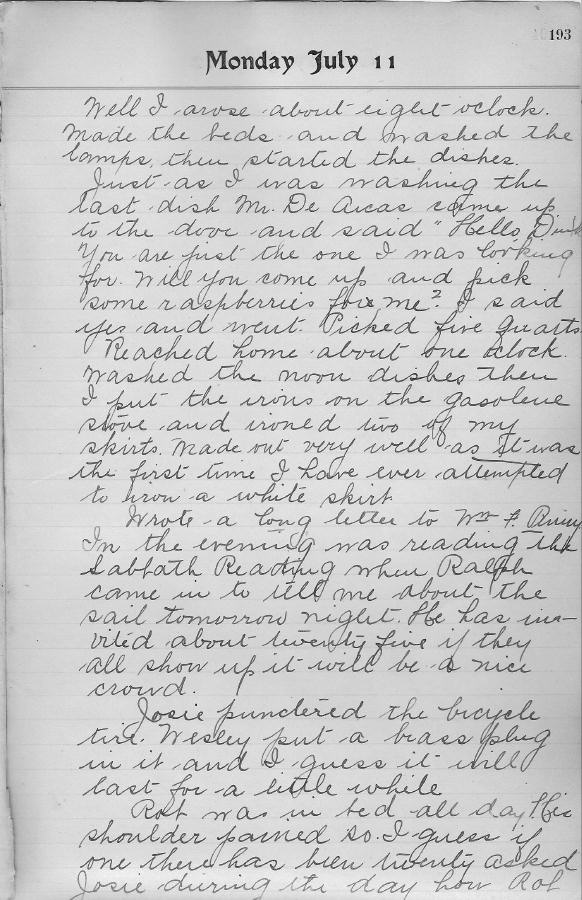 193
Monday July 11
Well I arose about eight oclock.
Made the beds and washed the
lamps, then started the dishes.
Just as I was washing the
last dish Mr. De Arcas came up
to the dove and said "Hello
You are just the one I was looking
for. Will you come up and pick
some raspberries for me? I said
yes and went. Picked five quarts
Reached home about one oclock.
Washed the noon dishes then
I put the irons on the gasolene
stove and ironed two of my
skirts. Made out very well as it was
the first time I have ever attempted
to iron a white skirt
Wrote a long letter to Wm F.
In the evening was reading the
Sabbath Reading when Ralph
came in to tell me about the
sail tomorrow night. He has in-
vited about twenty five if they
all show up it will be a nice
crowd.
Josie punctered the bicycle
tire. Wesley put a brass plug
in it and I guess it will
last for a little while
Rob was in bed all day. His
shoulder pained so. I guess if
one there has been twenty asked
Josie during the day how Rob